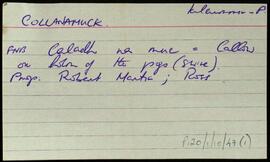 Kilcummin - P
COLLANAMUCK.
FNB Caladh na muc = Callow
or holm of the pigs (swine).
Prop: Robert Martin; Ross
P.120/1/10/47 (1)